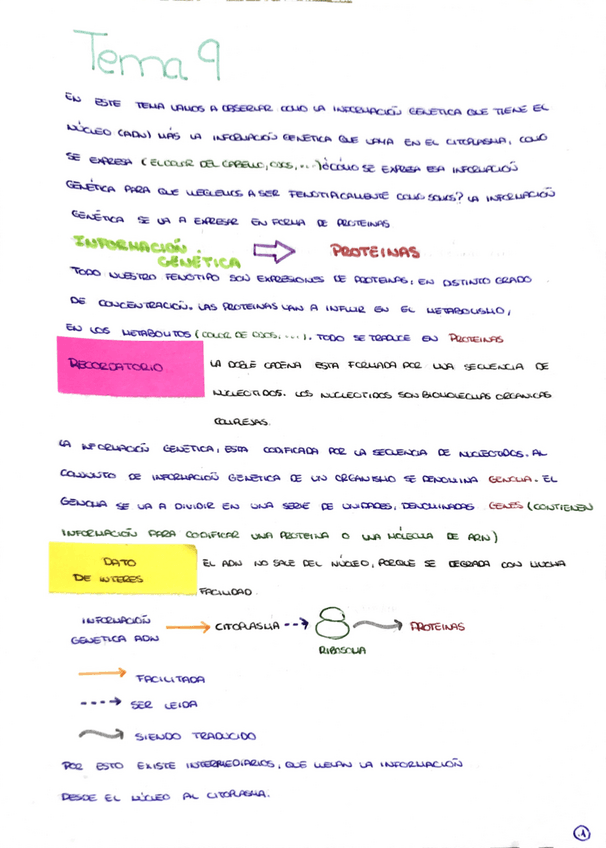 Tema 9
EN ESTE TEMA VAMOS A OBSERVAR COMO LA INFORMACIÓN GENÉTICA QUE TIENE EL
NÚCLEO (ADN) MÁS LA INFORMACIÓN GENÉTICA QUE VAYA EN EL CITOPLASMA, COMO
SE EXPRESA (EL COLOR DEL CABELLO, OJOS, ...) ¿CÓMO SE EXPRESA ESA INFORMACIÓN
GENÉTICA PARA QUE LLEGUEMOS A SER FENOTIPICAMENTE COMO SOMOS? LA INFORMACIÓN
GENÉTICA SE VA A EXPRESAR EN FORMA DE PROTEINAS
INFORMACIÓN GENÉTICA ⇨ PROTEINAS
TODO NUESTRO FENOTIPO SON EXPRESIONES DE PROTEINAS, EN DISTINTO GRADO
DE CONCENTRACIÓN. LAS PROTEINAS VAN A INFLUIR EN EL METABOLISMO,
EN LOS METABOLITOS (COLOR DE OJOS, ...). TODO SE TRADUCE EN PROTEINAS
RECORDATORIO
LA DOBLE CADENA ESTA FORMADA POR UNA SECUENCIA DE
NUCLEOTIDOS. LOS NUCLEOTIDOS SON BIOMOLECULAS ORGANICAS
COMPLEJAS.
LA INFORMACIÓN GENÉTICA, ESTA CODIFICADA POR LA SECUENCIA DE NUCLEOTIDOS. AL
CONJUNTO DE INFORMACIÓN GENÉTICA DE UN ORGANISMO SE DENOMINA GENOMA. EL
GENOMA SE VA A DIVIDIR EN UNA SERIE DE UNIDADES, DENOMINADAS GENES (CONTIENEN
INFORMACIÓN PARA CODIFICAR UNA PROTEINA O UNA MÓLECULA DE ARN)
DATO
DE INTERES
EL ADN NO SALE DEL NÚCLEO, PORQUE SE DEGRADA CON MUCHA
FACILIDAD.
INFORMACIÓN
GENETICA ADN → CITOPLASMA → PROTEINAS
RIBOSOMA
FACILITADA
SER LEIDA
SIENDO TRADUCIDO
POR ESTO EXISTE INTERMEDIARIOS, QUE LLEVAN LA INFORMACIÓN
DESDE EL NÚCLEO AL CITOPLASMA.
1